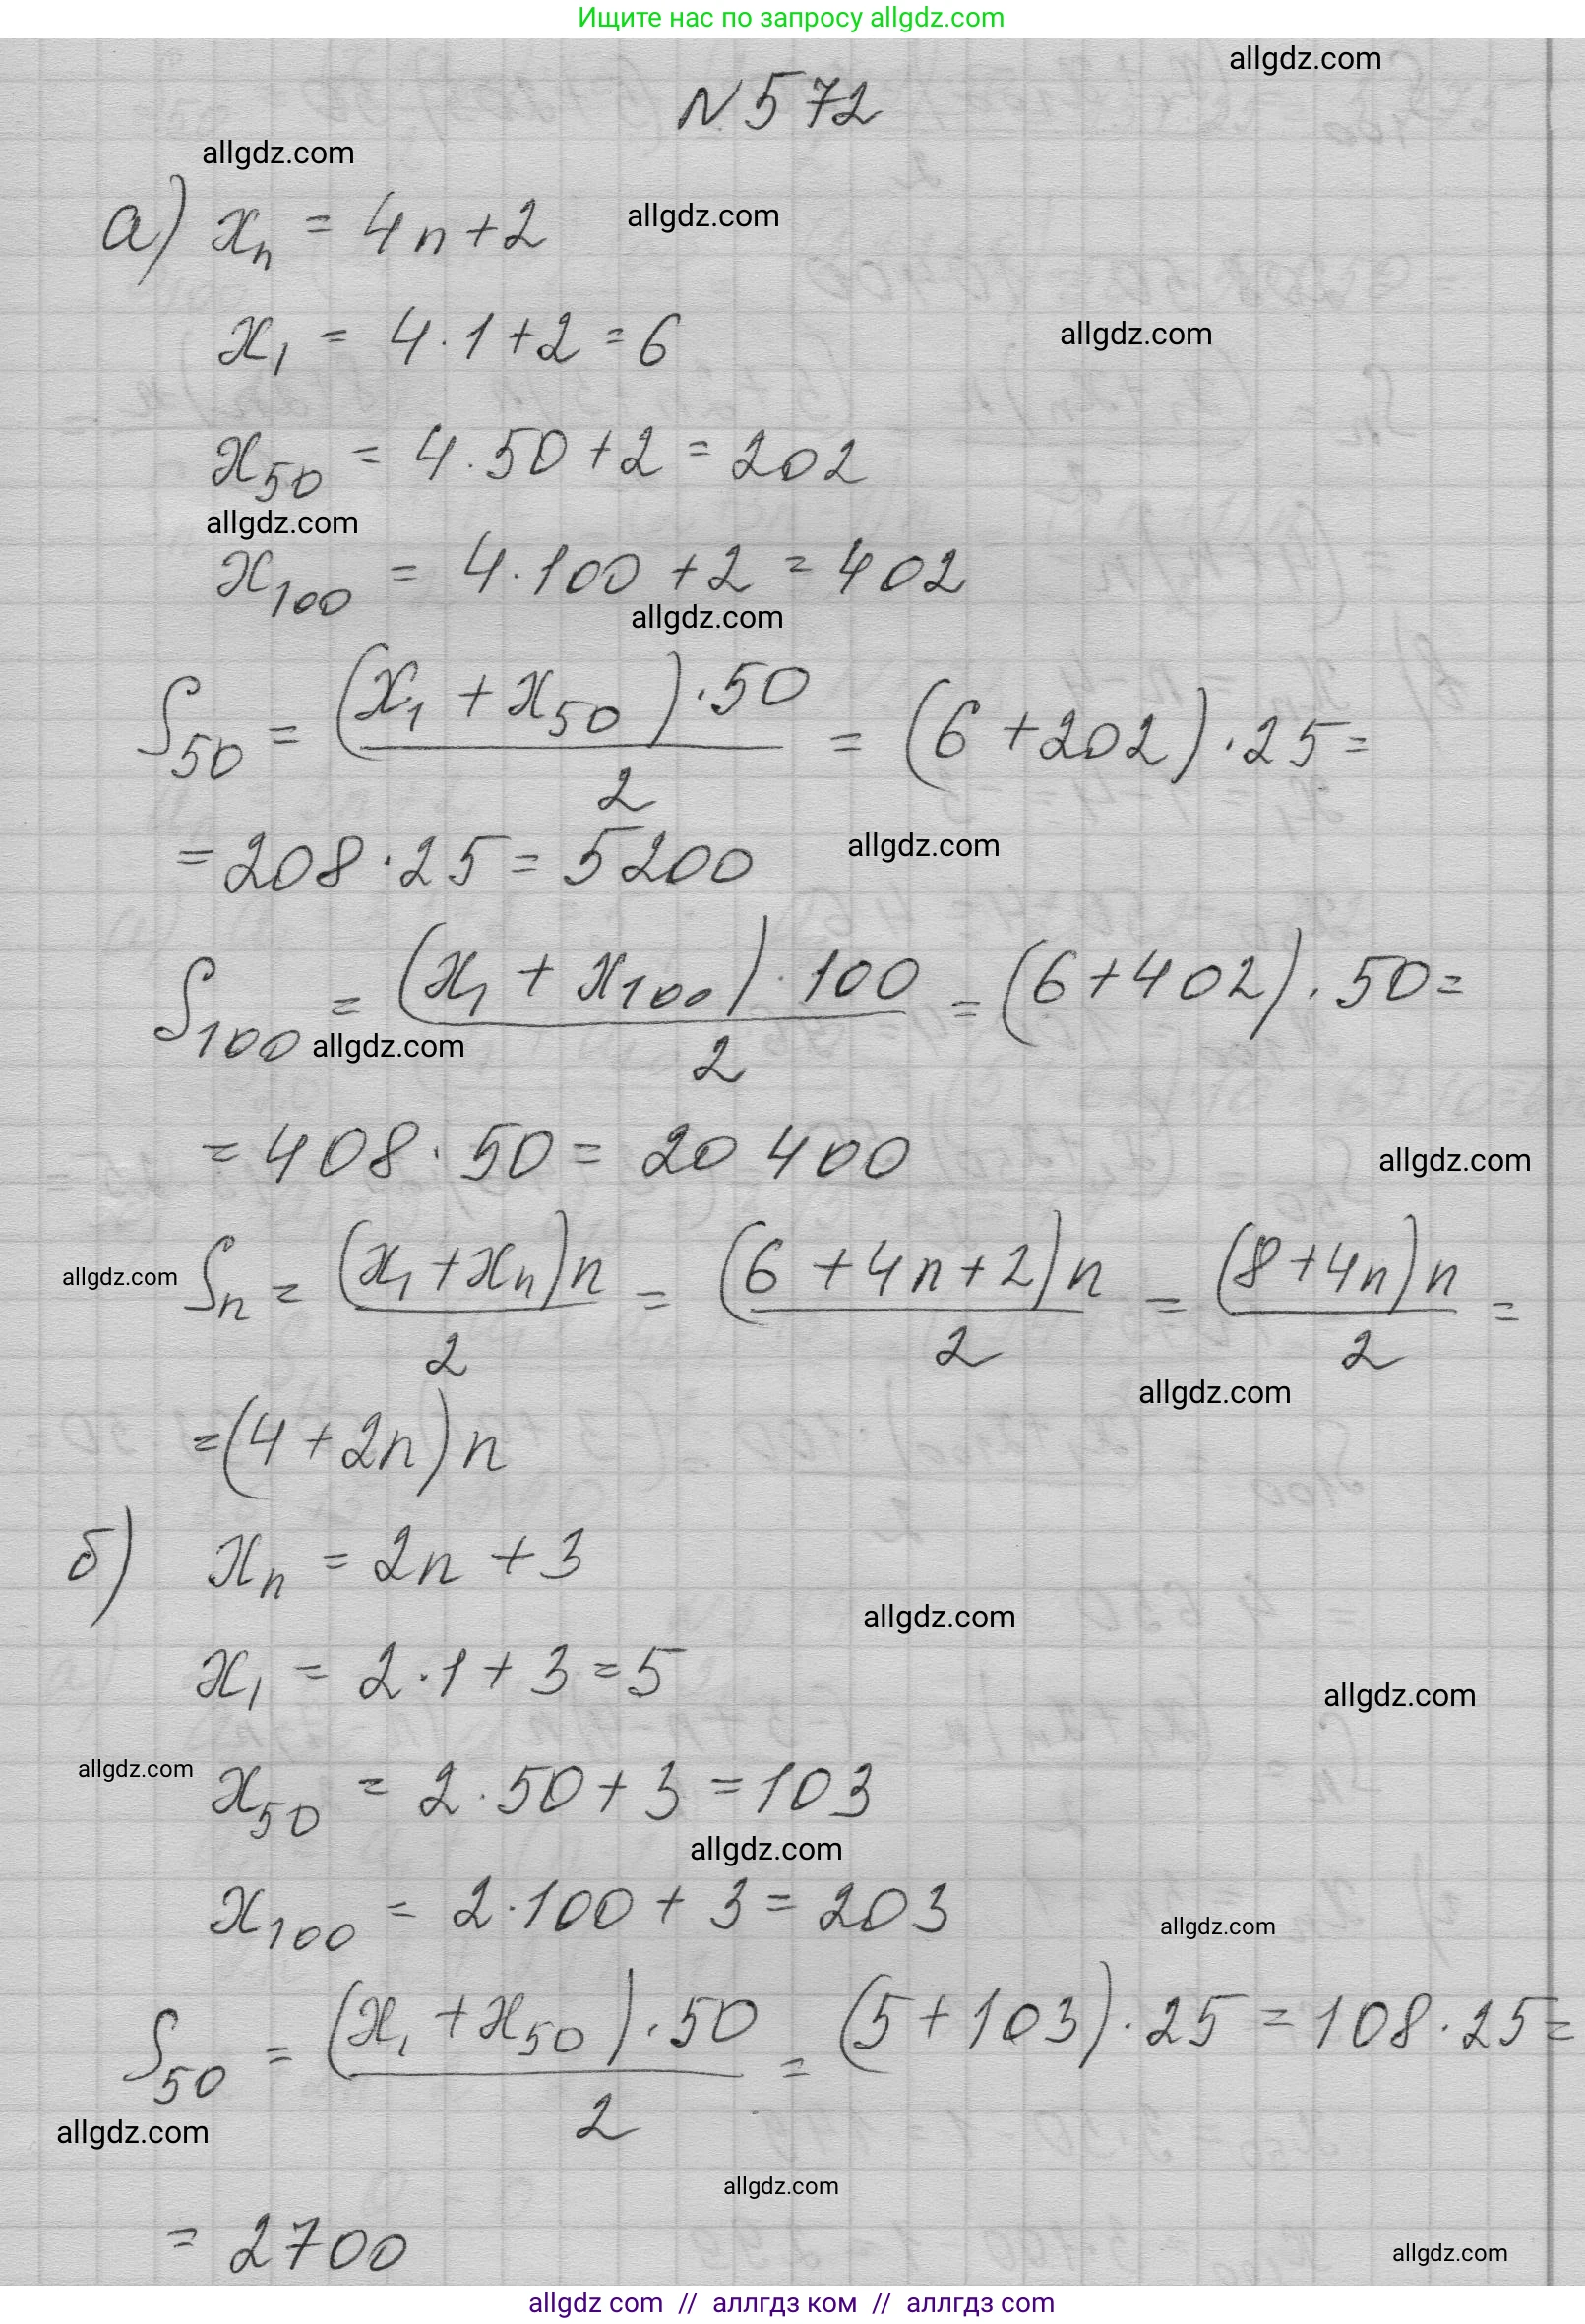 Ищите нас по запросу allgdz.com
allgdz.com
N 572
allgdz.com
а) xₙ = 4n+2
allgdz.com
x₁ = 4·1+2=6
allgdz.com
x₅₀ = 4·50+2=202
allgdz.com
x₁₀₀ = 4·100+2=402
allgdz.com
S₅₀ = (x₁+x₅₀)·50/2 = (6+202)·25=
=208·25=5200
allgdz.com
S₁₀₀ = (x₁+x₁₀₀)·100/2 = (6+402)·50=
allgdz.com
=408·50=20 400
allgdz.com
allgdz.com
Sₙ = (x₁+xₙ)n/2 = (6+4n+2)n/2 = (8+4n)n/2 =
allgdz.com
=(4+2n)n
б) xₙ = 2n+3
allgdz.com
x₁ = 2·1+3=5
allgdz.com
allgdz.com
x₅₀ = 2·50+3=103
allgdz.com
x₁₀₀ = 2·100+3=203
allgdz.com
S₅₀ = (x₁+x₅₀)·50/2 = (5+103)·25=108·25=
allgdz.com
allgdz.com
= 2700
allgdz.com
allgdz com // аллгдз ком // аллгдз com